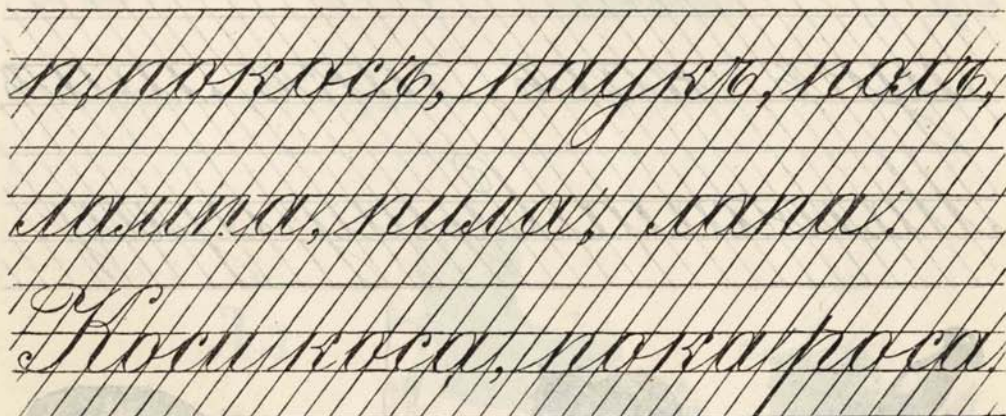 п, покосъ, паукъ, полъ,
лампа, пила, лапа.
Коси коса, пока роса.